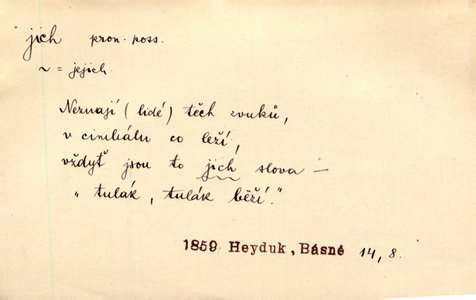 jich pron. poss.
~ = jejich.
Neznají (lidé) těch zvuků,
v cimbálu co leží,
vždyť jsou to jich slova —
„tulák, tulák běží."
1859 Heyduk, Básně 14, 8.